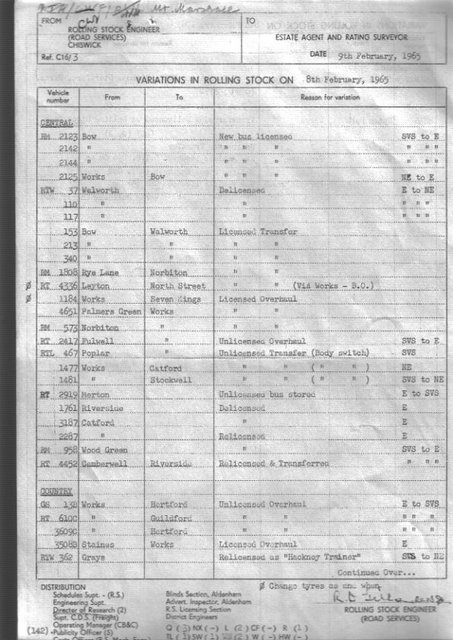 Mr. Marshall
FROM
ROLLING STOCK ENGINEER
(ROAD SERVICES)
CHISWICK
Ref. C16/3
TO
ESTATE AGENT AND RATING SURVEYOR
DATE 9th February, 1965
VARIATIONS IN ROLLING STOCK ON 8th February, 1965
Vehicle number From To Reason for variation
CENTRAL
RM 2123 Bow New bus licensed SVS to E
2142 " " " " " " "
2144 " " " " " " "
2125 Works Bow " " " NE to E
RTW 37 Walworth Delicensed E to NE
110 " " " " "
117 " " " " "
153 Bow Walworth Licensed Transfer
213 " " " "
340 " " " "
RM 1808 Rye Lane Norbiton " "
Ø RT 4336 Leyton North Street " " (Via Works - B.O.)
Ø 1184 Works Seven Kings Licensed Overhaul
4651 Palmers Green Works " "
RM 573 Norbiton " " "
RT 2417 Fulwell " Unlicensed Overhaul SVS to E
RTL 467 Poplar " Unlicensed Transfer (Body switch) SVS
1477 Works Catford " " ( " " ) NE
1481 " Stockwell " " ( " " ) SVS to NE
RT 2919 Merton Unlicensed bus stored E to SVS
1761 Riverside Delicensed E
3187 Catford " E
2287 " Relicensed E
RM 958 Wood Green " SVS to E
RT 4452 Camberwell Riverside Relicensed & Transferred " " "
COUNTRY
GS 13 Works Hertford Unlicensed Overhaul E to SVS
RT 610C " Guildford " " " " "
3609C " Hertford " " " " "
3508B Staines Works Licensed Overhaul E
RTW 362 Grays Relicensed as "Hackney Trainer" SVS to NE
Continued Over...
Ø Change tyres as and when
ROLLING STOCK ENGINEER
(ROAD SERVICES)
DISTRIBUTION
Schedules Supt. - (R.S.)
Engineering Supt.
Director of Research (2)
Supt. C.D.S. (Freight)
Operating Manager (CB&C)
(142) Publicity Officer (3)
Blinds Section, Aldenham
Advert. Inspector, Aldenham
R.S. Licensing Section
District Engineers